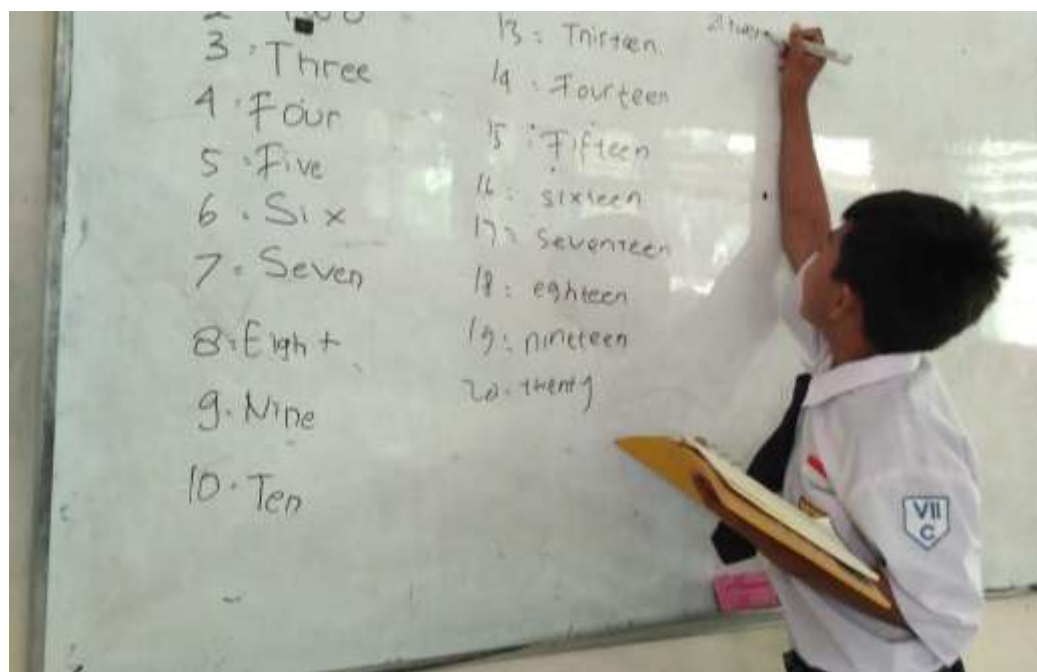 3. Three
4. Four
5. Five
6. Six
7. Seven
8. Eight
9. Nine
10. Ten
13: Thirteen
14: Fourteen
15: Fifteen
16: sixteen
17: seventeen
18: eghteen
19: nineteen
20. twenty
VII
C